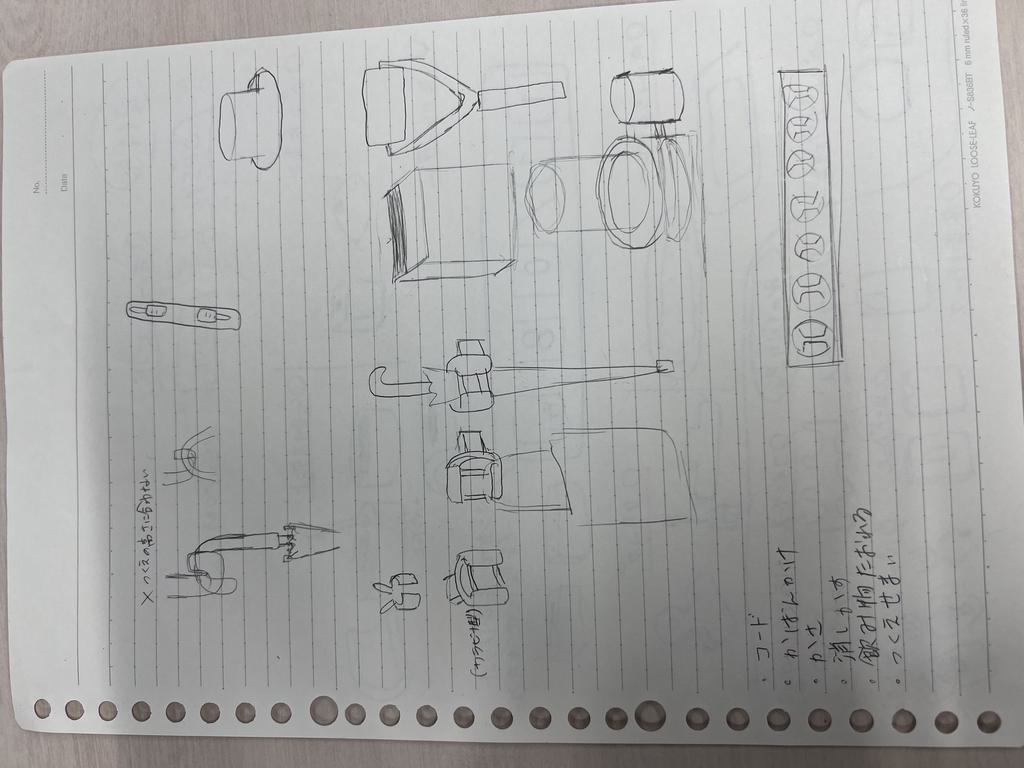 No.
Date
×つくえの高さに合わない
・コード
・かばんかけ
・かさ
・消しかす
・飲み物たおれる
・つくえせまい
KOKUYO LOOSE-LEAF ノ-S836BT 6 mm ruled×36